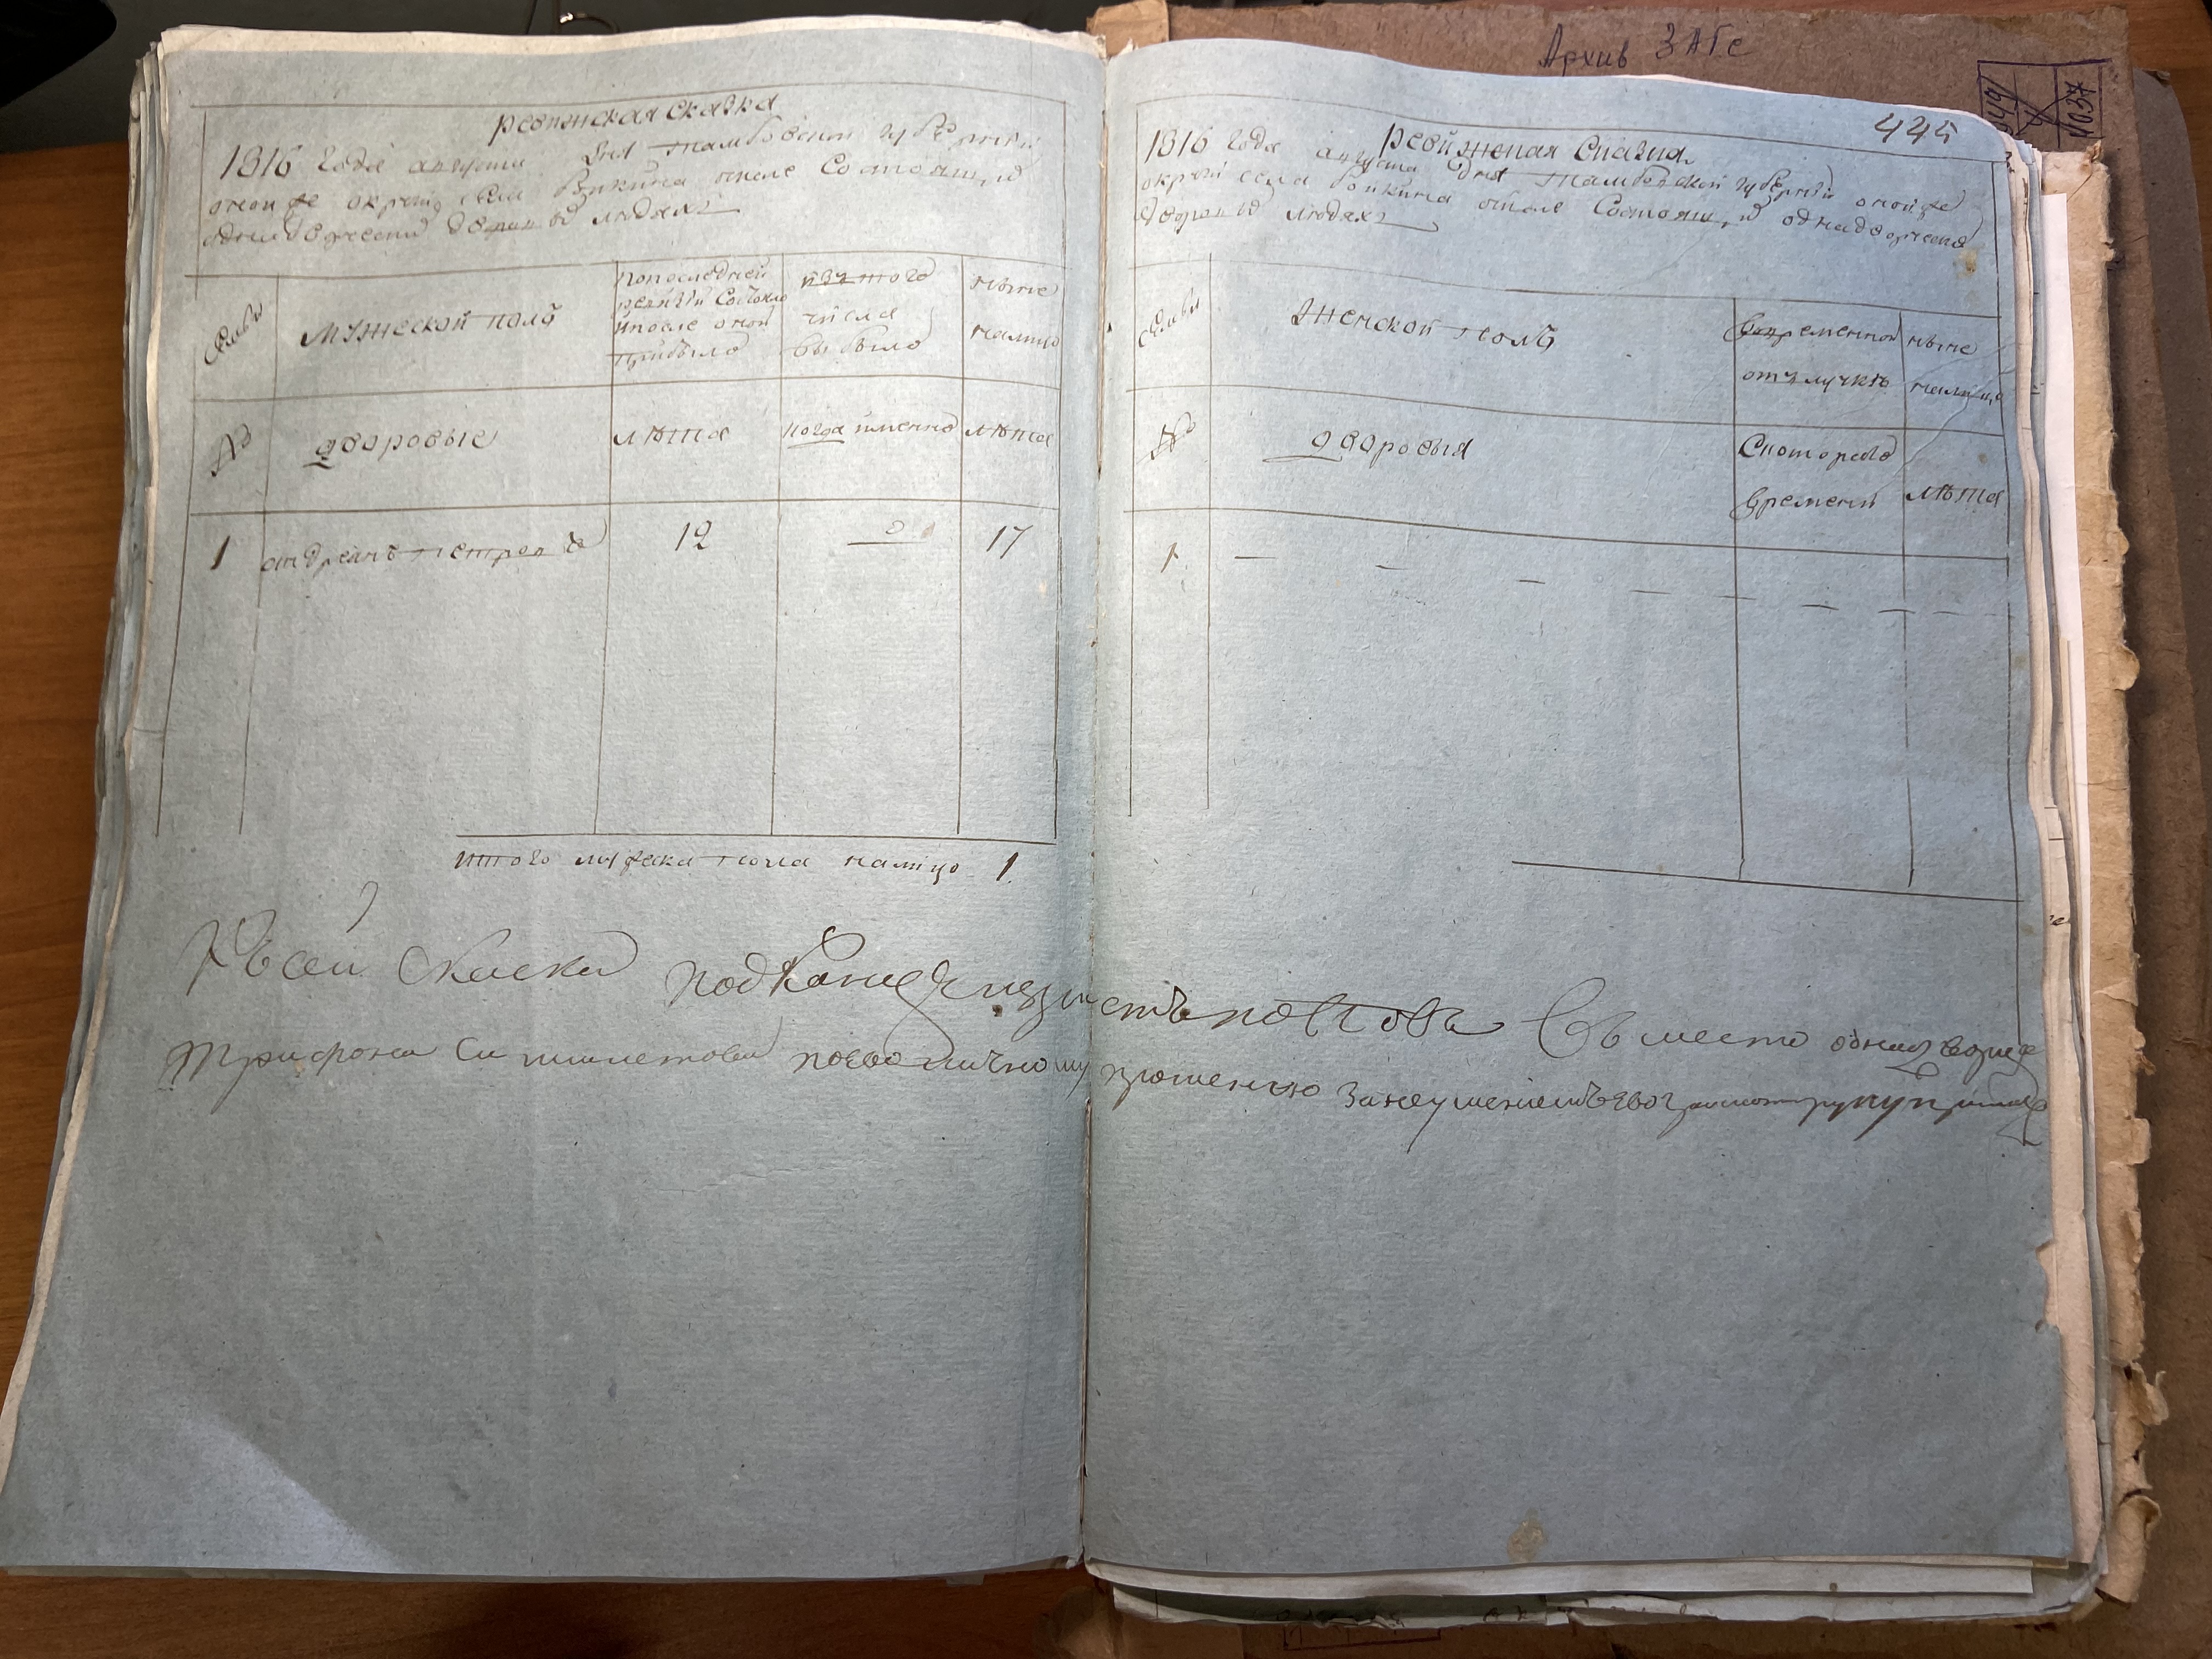 Архив ЗАГС
1037
ревижская сказка
1816 года августа дня тамбовской губернии
оной же округи села Бойкина после состоящих
однодворческих дворовых людях
семьи
мужеской полъ
попоследней
ревизии состояло
и после оной
прибыло
изъ того
числа
выбыло
ныне
налицо
№
дворовые
лѣта
когда имянно
лѣта
1 андреянъ петровъ 12 17
итого мужеска пола налицо 1
445
ревижская сказка
1816 года августа дня тамбовской губернии оной же
округи села Бойкина после состоящих однодворческих
дворовых людях
семьи
женской полъ
вовременной
отлучкѣ
ныне
налицо
№
дворовыя
Скотораго
времени
лѣта
1 — — — — — — — —
Ксей скаски подканцеляристъ поповъ вместо однодворца
трифона поево личному прошению занеумениемъ ево грамоте руку приложилъ